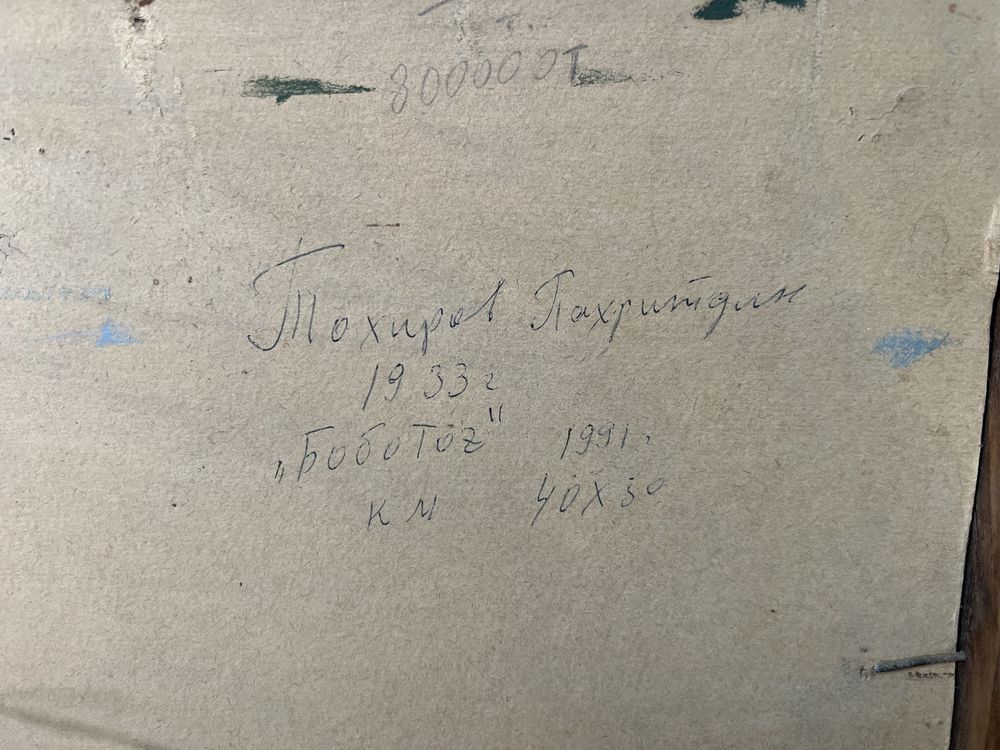 800000т
Тохиров Пахритдин
1933г
„Боботоғ" 1991г.
км 40х50